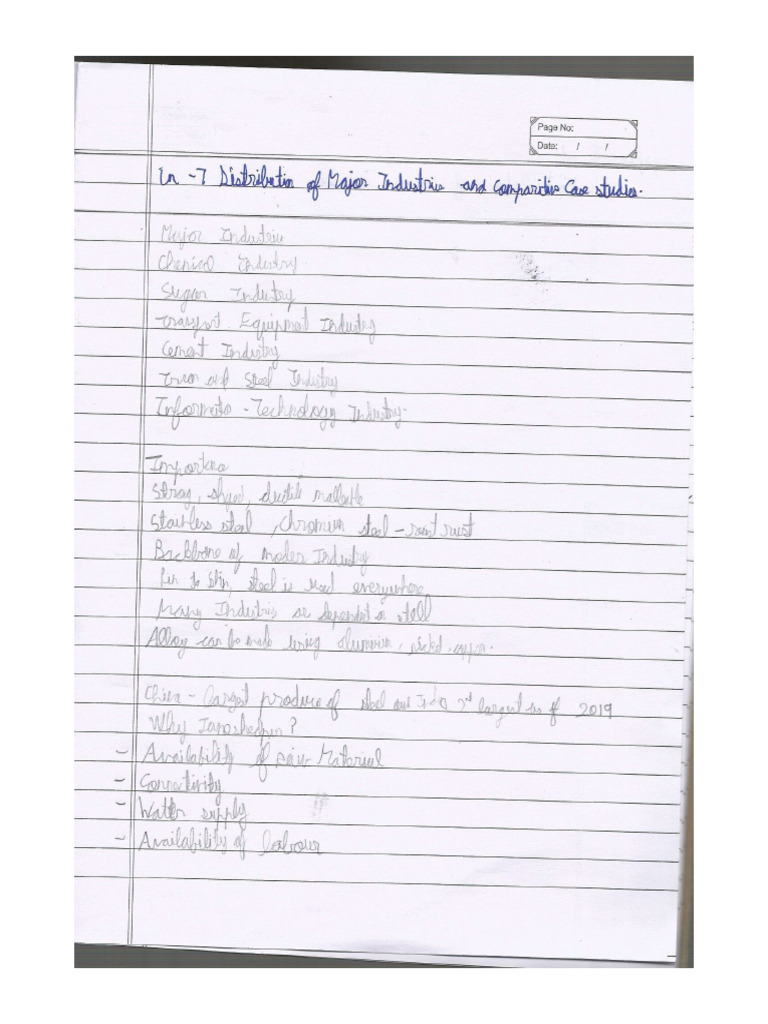 Page No:
Date: / /
Ln -7 Distribution of Major Industries and Comparitive Case studies.
Major Industries
Chemical Industry
Sugar Industry
Transport Equipment Industry
Cement Industry
Iron and Steel Industry
Informatio - Technology Industry.
Importance
Strong, shaped, ductile malleable
Stainless steel, chromium steel - resist rust
Backbone of modern Industry
Pin to Ship, steel is used everywhere
Many Industries are dependent on steel
Alloy can be made using aluminium, nickel, copper.
China - largest produce of steel and 2nd largest as of 2019
Why Jamshedpur?
- Availability of raw Material
- Connectivity
- Water supply
- Availability of labour